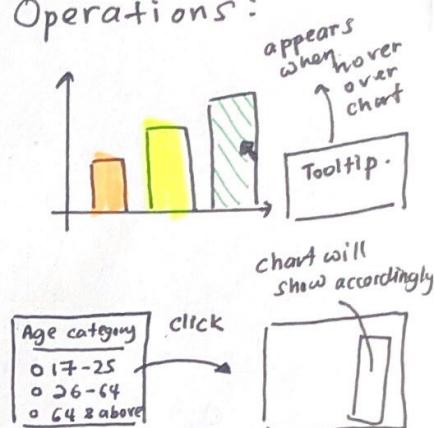 Operations:
appears
when hover
over
chart
Tooltip.
chart will
show accordingly
Age category
click
o 17-25
o 26-64
o 64 & above